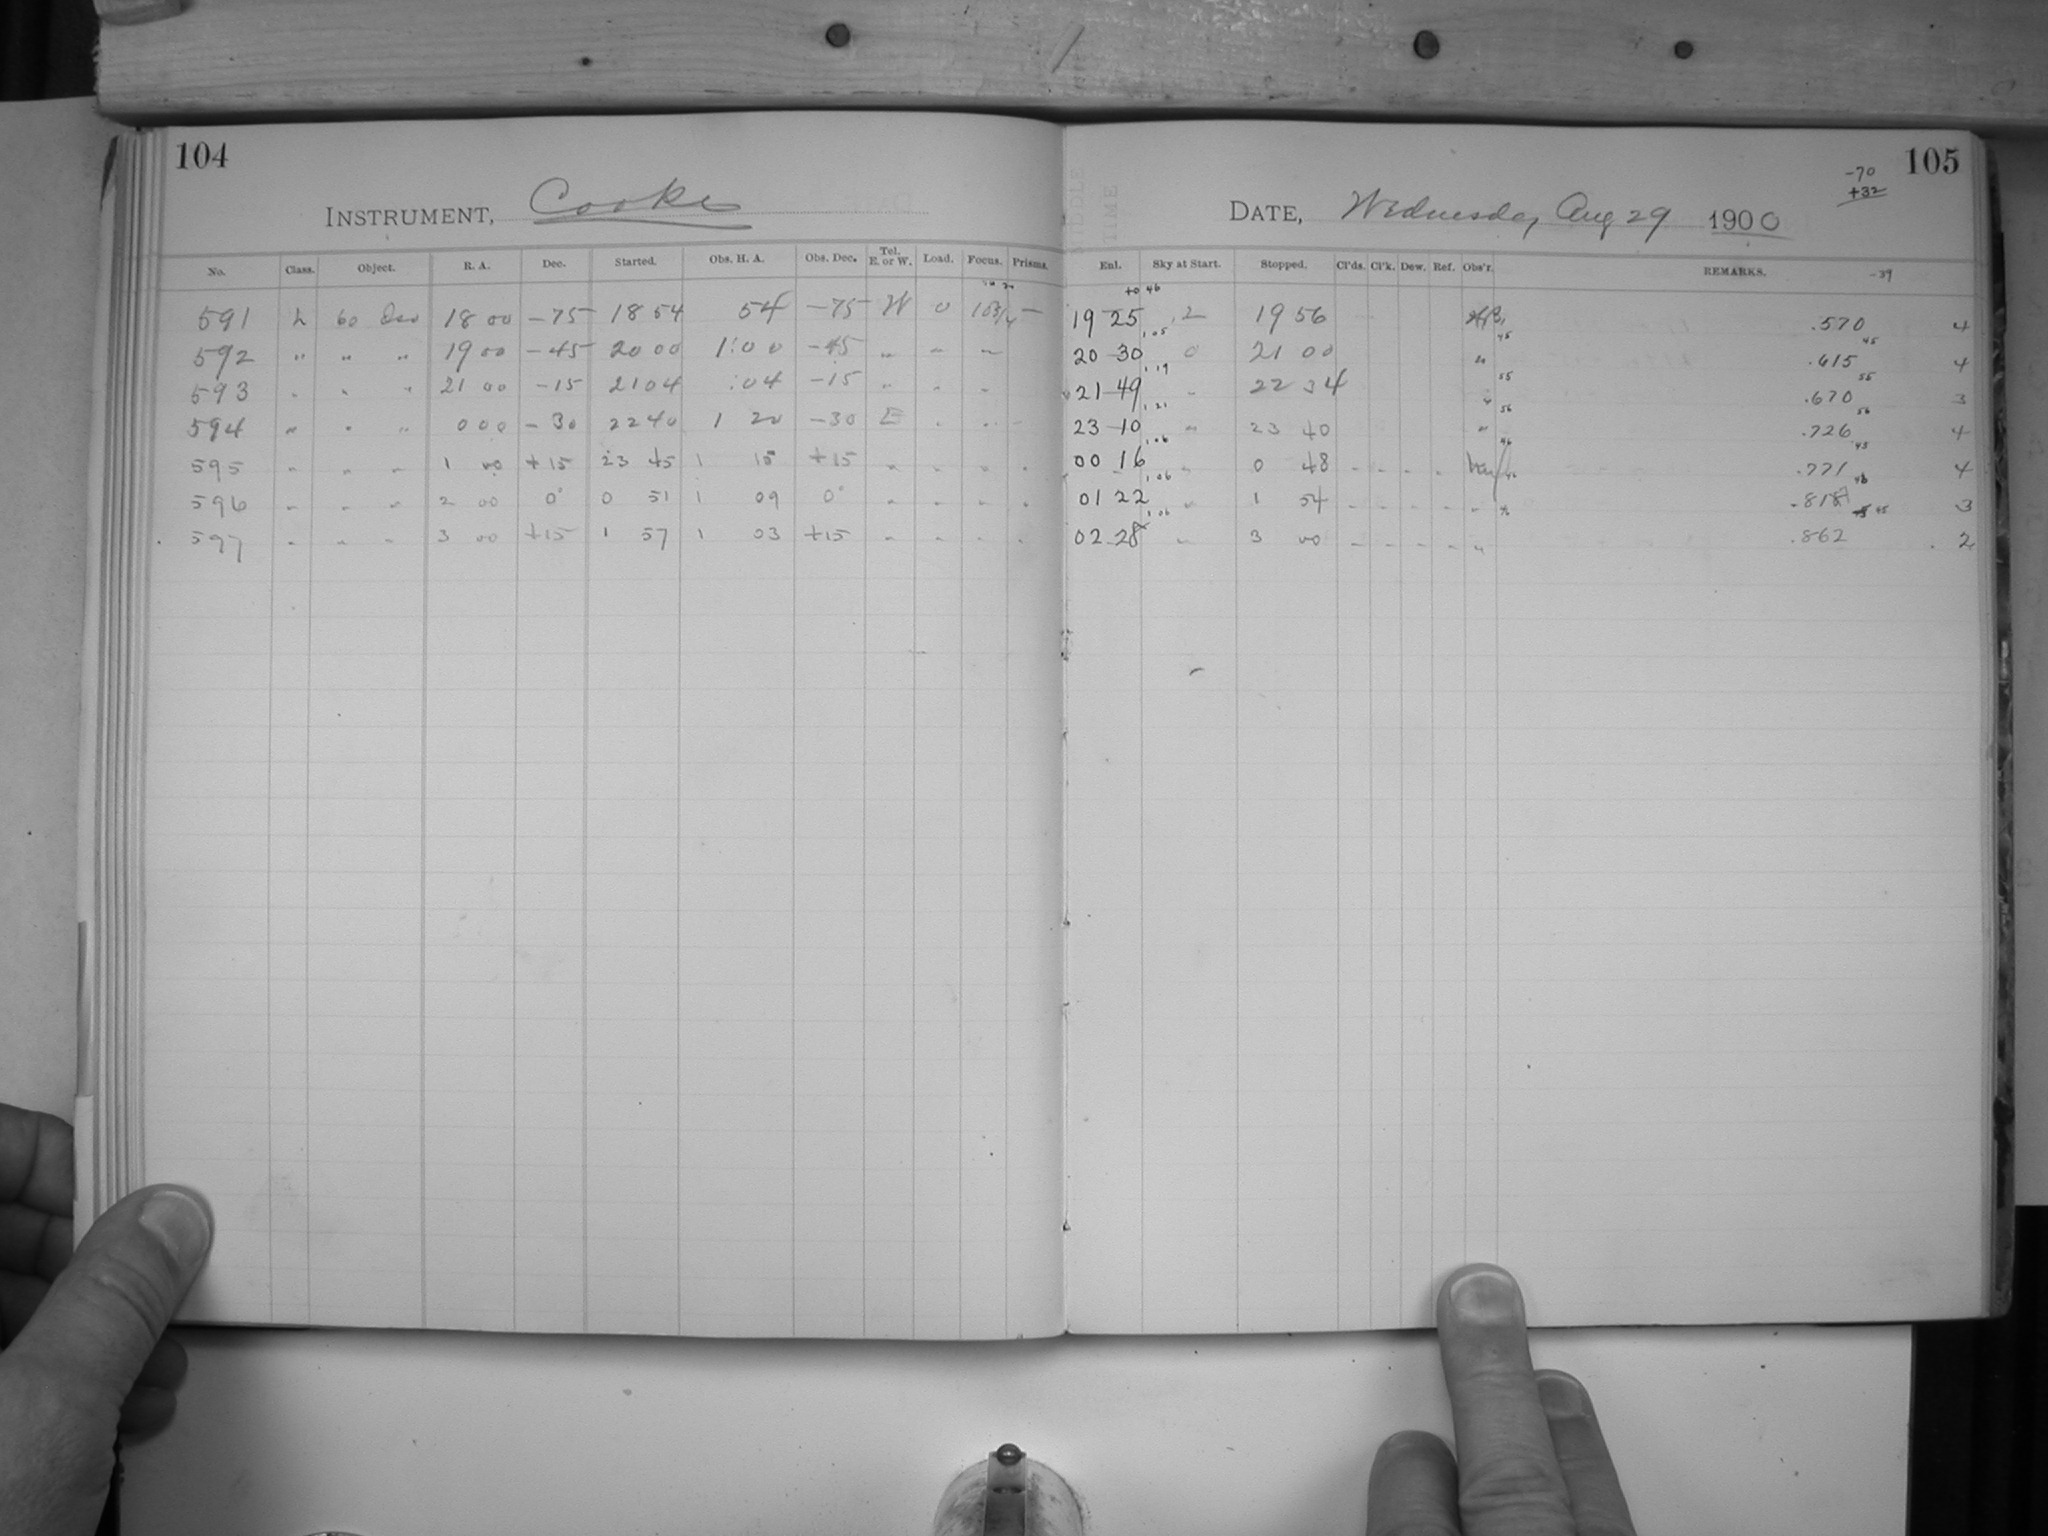 104
INSTRUMENT, Cooke
No. Class. Object. R. A. Dec. Started. Obs. H. A. Obs. Dec. Tel. E. or W. Load. Focus. Prisms.
591 L 60 18 00 -75 18 54 54 -75 W 0 10 3/4 -
592 " " " 19 00 -45 20 00 1:00 -45 " " "
593 " " " 21 00 -15 21 04 :04 -15 " " "
594 " " " 0 00 -30 22 40 1 20 -30 E " "
595 " " " 1 00 +15 23 45 1 15 +15 " " " "
596 " " " 2 00 0° 0 51 1 09 0° " " " "
597 " " " 3 00 +15 1 57 1 03 +15 " " " "
105
-70
+32
DATE, Wednesday Aug 29 1900
Enl. Sky at Start. Stopped. Cl'ds. Cl'k. Dew. Ref. Obs'r. REMARKS. -39
+0 46
19 25 2 19 56 .570 4
1.05 45 45
20 30 0 21 00 " .615 4
1.19 55 55
21 49 " 22 34 " .670 3
1.21 56 56
23 10 " 23 40 " .726 4
1.06 46 45
00 16 " 0 48 " " " " .771 4
1.06 46 46
01 22 " 1 54 " " " " " 3
1.06 45
02 28 " 3 00 " " " " " .862 2